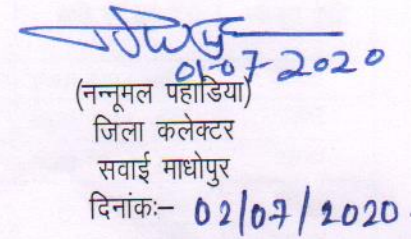 01-07-2020
(नन्नूमल पहाडिया)
जिला कलेक्टर
सवाई माधोपुर
दिनांकः– 02/07/2020.